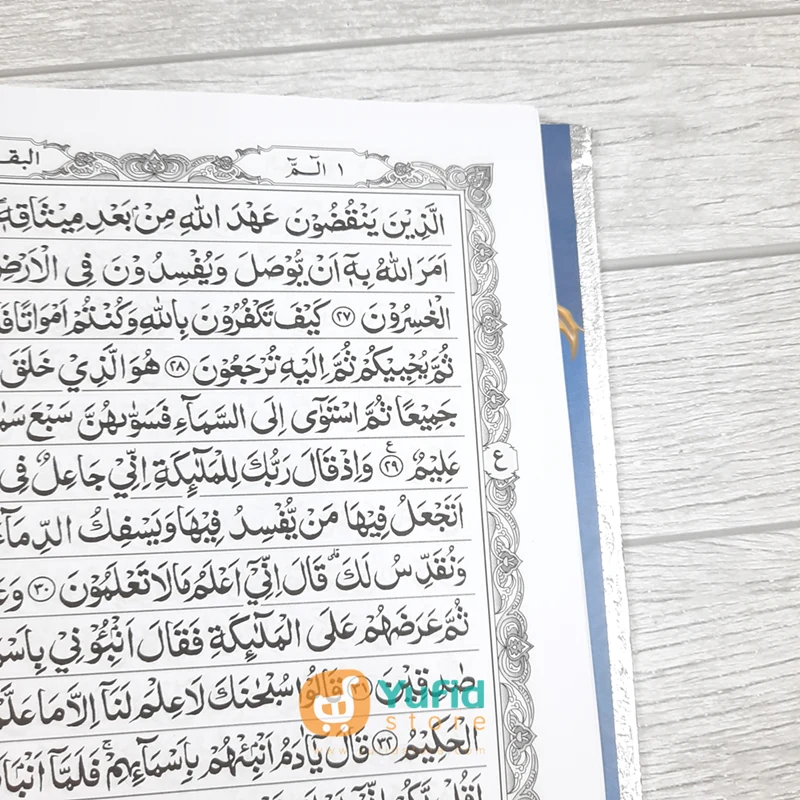 ١ الٓمّٓ
البق
الَّذِيْنَ يَنْقُضُوْنَ عَهْدَ اللّٰهِ مِنْۢ بَعْدِ مِيْثَاقِهٖ
اَمَرَ اللّٰهُ بِهٖٓ اَنْ يُّوْصَلَ وَيُفْسِدُوْنَ فِى الْاَرْضِ
الْخٰسِرُوْنَ ٢٧ كَيْفَ تَكْفُرُوْنَ بِاللّٰهِ وَكُنْتُمْ اَمْوَاتًا فَ
ثُمَّ يُحْيِيْكُمْ ثُمَّ اِلَيْهِ تُرْجَعُوْنَ ٢٨ هُوَ الَّذِيْ خَلَقَ
جَمِيْعًا ثُمَّ اسْتَوٰٓى اِلَى السَّمَاۤءِ فَسَوّٰىهُنَّ سَبْعَ سَمٰ
عَلِيْمٌ ࣖ ٢٩ وَاِذْ قَالَ رَبُّكَ لِلْمَلٰۤىِٕكَةِ اِنِّيْ جَاعِلٌ فِى
ع
اَتَجْعَلُ فِيْهَا مَنْ يُّفْسِدُ فِيْهَا وَيَسْفِكُ الدِّمَاۤءَ
وَنُقَدِّسُ لَكَ ۗ قَالَ اِنِّيْٓ اَعْلَمُ مَا لَا تَعْلَمُوْنَ ٣٠ وَعَ
ثُمَّ عَرَضَهُمْ عَلَى الْمَلٰۤىِٕكَةِ فَقَالَ اَنْۢبِـُٔوْنِيْ بِاَسْمَ
صٰدِقِيْنَ ٣١ قَالُوْا سُبْحٰنَكَ لَا عِلْمَ لَنَآ اِلَّا مَا عَلَّمْ
الْحَكِيْمُ ٣٢ قَالَ يٰٓاٰدَمُ اَنْۢبِئْهُمْ بِاَسْمَاۤىِٕهِمْ ۚ فَلَمَّآ اَنْۢبَاَ
Yufid
store